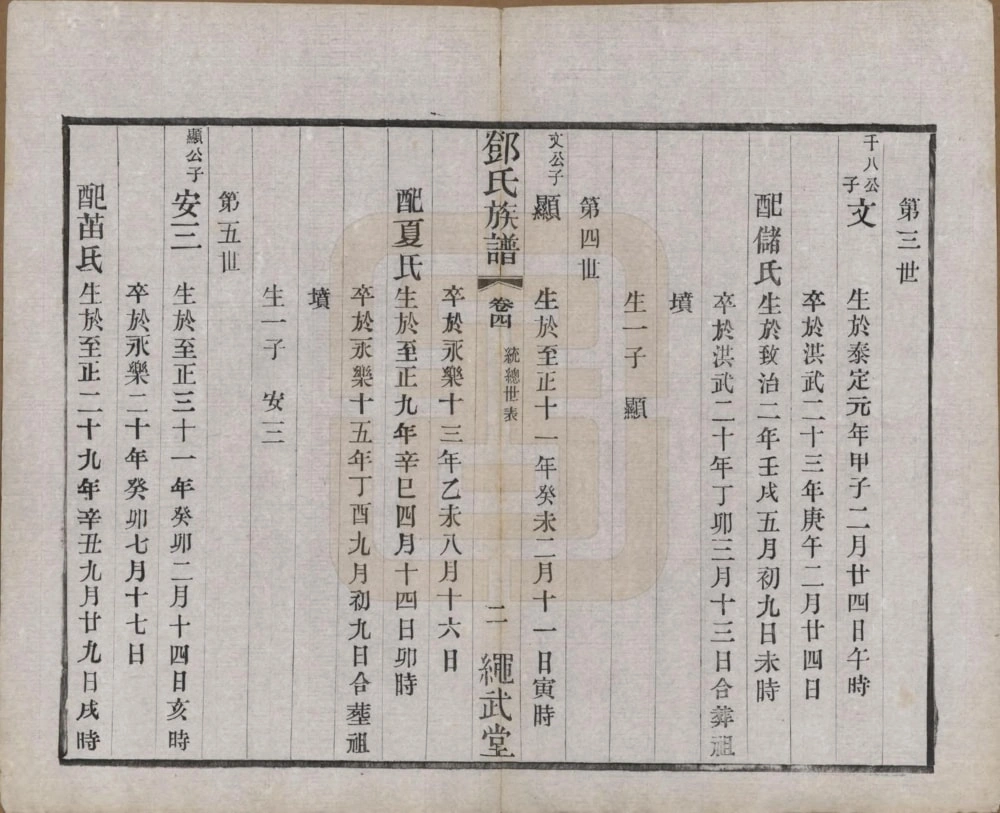 第三世
千八公子 文 生於泰定元年甲子二月廿四日午時
卒於洪武二十三年庚午二月廿四日
配儲氏生於致治二年壬戌五月初九日未時
卒於洪武二十年丁卯三月十三日合葬祖
墳
生一子 顯
第四世
文公子 顯 生於至正十一年癸未二月十一日寅時
鄧氏族譜 卷四 統總世表 二 繩武堂
卒於永樂十三年乙未八月十六日
配夏氏生於至正九年辛巳四月十四日卯時
卒於永樂十五年丁酉九月初九日合塟祖
墳
生一子 安三
第五世
顯公子 安三 生於至正三十一年癸卯二月十四日亥時
卒於永樂二十年癸卯七月十七日
配苗氏生於至正二十九年辛丑九月廿九日戌時